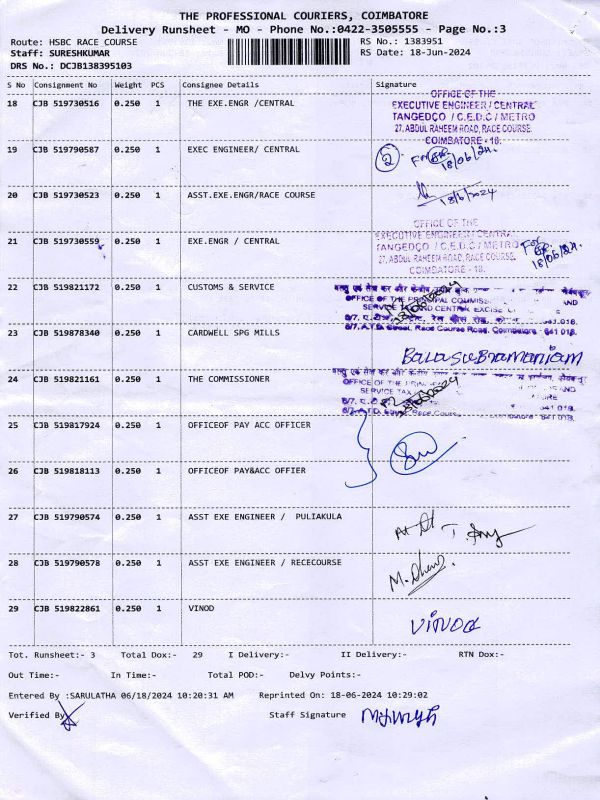 THE PROFESSIONAL COURIERS, COIMBATORE
Delivery Runsheet - MO - Phone No.:0422-3505555 - Page No.:3
Route: HSBC RACE COURSE RS No.: 1383951
Staff: SURESHKUMAR RS Date: 18-Jun-2024
DRS No.: DCJB138395103
S No Consignment No Weight PCS Consignee Details Signature
18 CJB 519730516 0.250 1 THE EXE.ENGR /CENTRAL
OFFICE OF THE
EXECUTIVE ENGINEER / CENTRAL
TANGEDCO / C.E.D.C / METRO
27, ABDUL RAHEEM ROAD, RACE COURSE.
COIMBATORE - 18.
19 CJB 519790587 0.250 1 EXEC ENGINEER/ CENTRAL
2 For 18/06/24.
20 CJB 519730523 0.250 1 ASST.EXE.ENGR/RACE COURSE
18/6/2024
21 CJB 519730559 0.250 1 EXE.ENGR / CENTRAL
OFFICE OF THE
EXECUTIVE ENGINEER / CENTRAL
TANGEDCO / C.E.D.C / METRO
27, ABDUL RAHEEM ROAD, RACE COURSE.
COIMBATORE - 18.
For 18/06/24.
22 CJB 519821172 0.250 1 CUSTOMS & SERVICE
OFFICE OF THE PRINCIPAL
SERVICE AND CENTRAL EXCISE
6/7, A.T.D. Street, Race Course Road, Coimbatore - 641 018.
23 CJB 519878340 0.250 1 CARDWELL SPG MILLS
BalasuBramaniam
24 CJB 519821161 0.250 1 THE COMMISSIONER
OFFICE OF THE
SERVICE TAX
6/7, A.T.D. Race Course 641 018.
25 CJB 519817924 0.250 1 OFFICEOF PAY ACC OFFICER
26 CJB 519818113 0.250 1 OFFICEOF PAY&ACC OFFIER
27 CJB 519790574 0.250 1 ASST EXE ENGINEER / PULIAKULA
28 CJB 519790578 0.250 1 ASST EXE ENGINEER / RECECOURSE
29 CJB 519822861 0.250 1 VINOD
VINOD
Tot. Runsheet:- 3 Total Dox:- 29 I Delivery:- II Delivery:- RTN Dox:-
Out Time:- In Time:- Total POD:- Delvy Points:-
Entered By :SARULATHA 06/18/2024 10:20:31 AM Reprinted On: 18-06-2024 10:29:02
Verified By Staff Signature